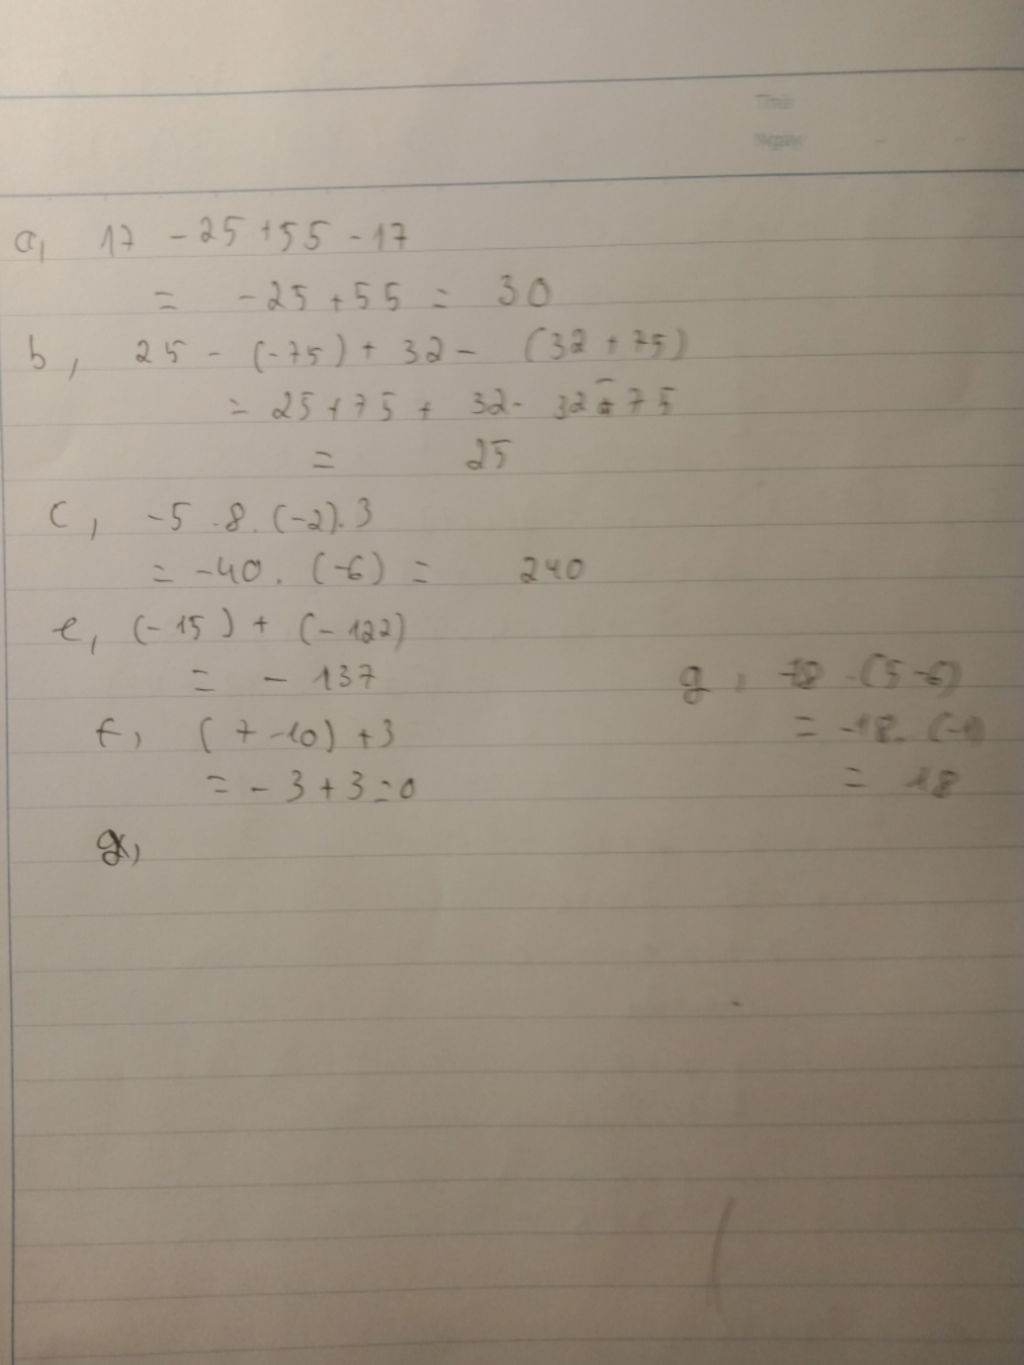 Thứ
Ngày - -
a, 17 - 25 + 55 - 17
= - 25 + 55 = 30
b, 25 - (-75) + 32 - (32 + 75)
= 25 + 75 + 32 - 32 - 75
= 25
c, -5 . 8 . (-2) . 3
= -40 . (-6) = 240
e, (- 15) + (- 122)
= - 137
f, (7 - 10) + 3
= - 3 + 3 = 0
g,
g, -18 . (5 - 6)
= -18 . (-1)
= 18